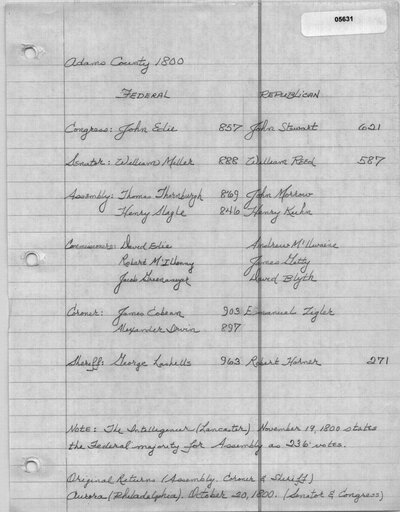 05631
Adams County 1800
FEDERAL REPUBLICAN
Congress: John Edie 857 John Stewart 621
Senator: William Miller 888 William Reed 587
Assembly: Thomas Thornburgh 869 John Morrow
Henry Slagle 846 Henry Kuhn
Commissioners: David Edie Andrew McIlwaine
Robert McIlhenny James Getty
Jacob Greenamyer David Blyth
Coroner: James Cobean 903 Emmanuel Zigler
Alexander Irwin 897
Sheriff: George Lashells 963 Robert Horner 271
Note: The Intelligencer (Lancaster) November 19, 1800 states
the Federal majority for Assembly as 236 votes.
Original Returns (Assembly, Coroner & Sheriff)
Aurora (Philadelphia). October 20, 1800. (Senator & Congress)